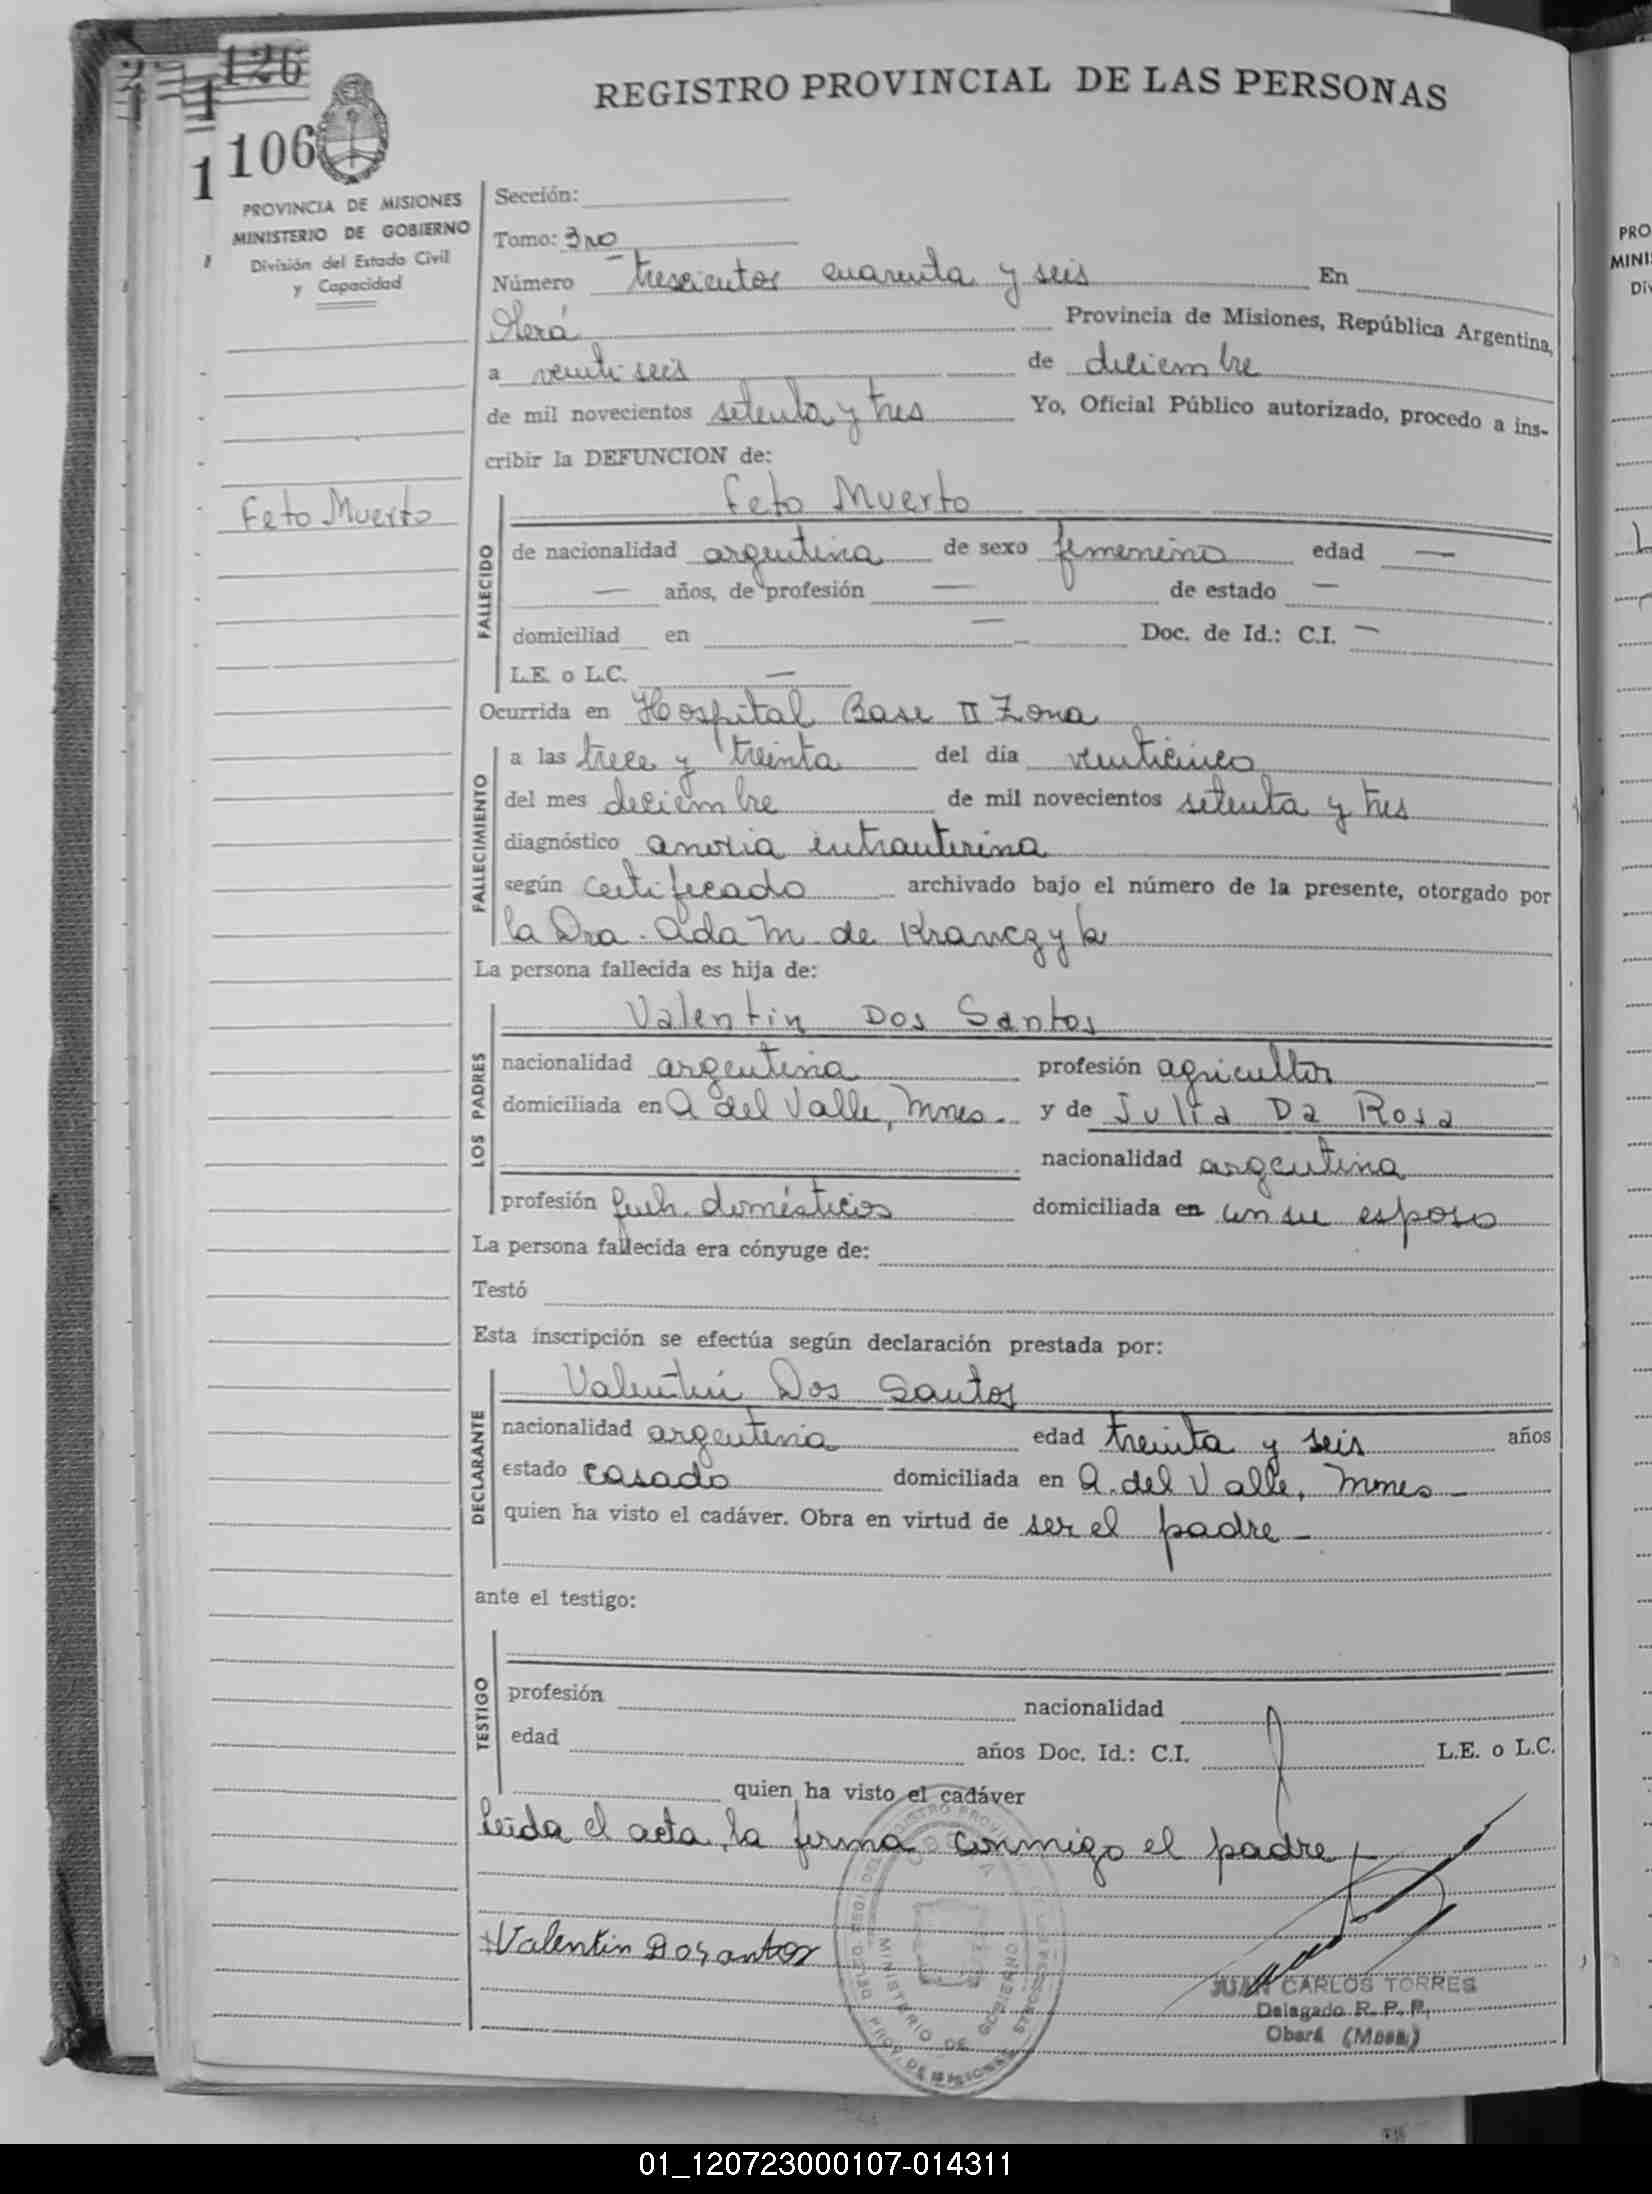 126
1 106
1
REGISTRO PROVINCIAL DE LAS PERSONAS
PROVINCIA DE MISIONES
MINISTERIO DE GOBIERNO
División del Estado Civil
y Capacidad
Feto Muerto
Sección:
Tomo: 3ro
Número trescientos cuarenta y seis En
Oberá Provincia de Misiones, República Argentina,
a veinti seis de diciembre
de mil novecientos setenta y tres Yo, Oficial Público autorizado, procedo a ins-
cribir la DEFUNCION de:
FALLECIDO
Feto Muerto
de nacionalidad argentina de sexo femenino edad —
— años, de profesión — de estado —
domiciliad en — Doc. de Id.: C.I. —
L.E. o L.C. —
Ocurrida en Hospital Base II Zona
FALLECIMIENTO
a las trece y treinta del día veinticinco
del mes diciembre de mil novecientos setenta y tres
diagnóstico anoxia intrauterina
según certificado archivado bajo el número de la presente, otorgado por
la Dra. Ada M. de Krawczyk
La persona fallecida es hija de:
LOS PADRES
Valentin Dos Santos
nacionalidad argentina profesión agricultor
domiciliada en A del Valle, Mnes. y de Julia Da Rosa
nacionalidad argentina
profesión queh. domésticos domiciliada en con su esposo
La persona fallecida era cónyuge de:
Testó
Esta inscripción se efectúa según declaración prestada por:
DECLARANTE
Valentin Dos Santos
nacionalidad argentina edad treinta y seis años
estado casado domiciliada en A. del Valle, Mnes —
quien ha visto el cadáver. Obra en virtud de ser el padre —
ante el testigo:
TESTIGO
profesión nacionalidad
edad años Doc. Id.: C.I. L.E. o L.C.
quien ha visto el cadáver
leida el acta, la firma conmigo el padre
Valentin Dosantos
MINISTERIO DE GOBIERNO
PROV. DE MISIONES
JUAN CARLOS TORRES
Delegado R. P. P.
Oberá (Mnes.)
PRO
MINI
Div
01_120723000107-014311